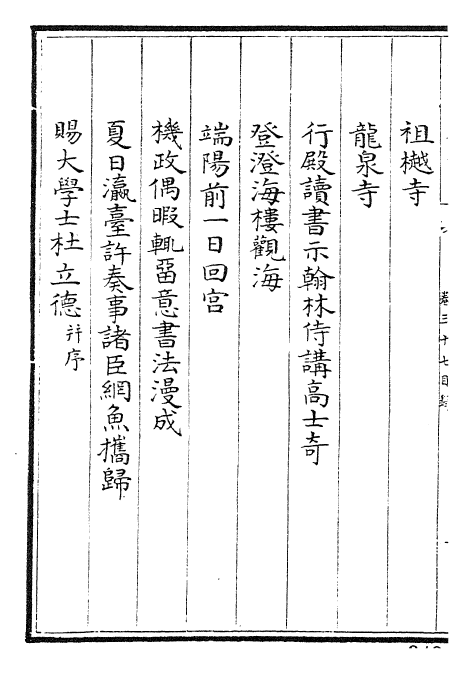 祖樾寺
龍泉寺
行殿讀書示翰林侍講高士奇
登澄海樓觀海
端陽前一日回宫
機政偶暇輒留意書法漫成
夏日瀛臺許奏事諸臣網魚攜歸
賜大學士杜立德并序